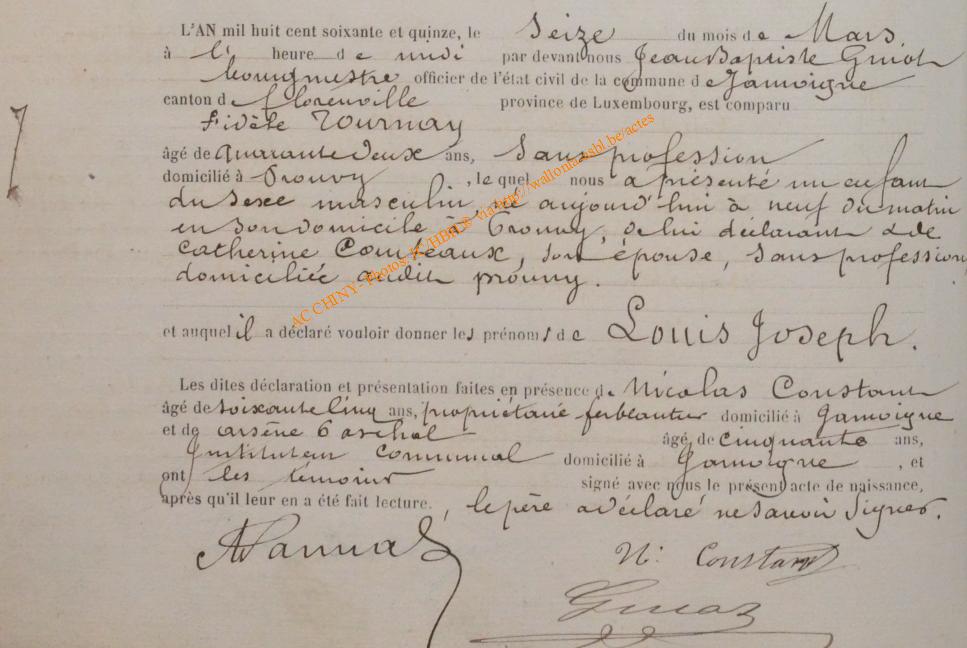 L'AN mil huit cent soixante et quinze, le Seize du mois de Mars
à l' heure de midi par devant nous Jean Baptiste Guiot
bourgmestre officier de l'état civil de la commune de Jamoigne
canton de florenville province de Luxembourg, est comparu
Fidèle Tournay
âgé de quarante deux ans, Sans profession
domicilié à Prouvy , lequel nous a présenté un enfant
du Sexe masculin, né aujourd'hui à neuf du matin
en son domicile à Prouvy, de lui déclarant & de
Catherine Comteaux, son épouse, Sans profession,
domiciliée audit prouvy.
et auquel il a déclaré vouloir donner les prénoms de Louis Joseph.
Les dites déclaration et présentation faites en présence de Nicolas Constant
âgé de soixante cinq ans, propriétaire domicilié à Jamoigne
et de arsène âgé de cinquante ans,
Instituteur Communal domicilié à Jamoigne , et
ont les témoins signé avec nous le présent acte de naissance,
après qu'il leur en a été fait lecture. , le père a déclaré ne Savoir Signer.
N. Constant
Guiot
AC CHINY - Photos via http://wallonia.asbl.be/actes
7